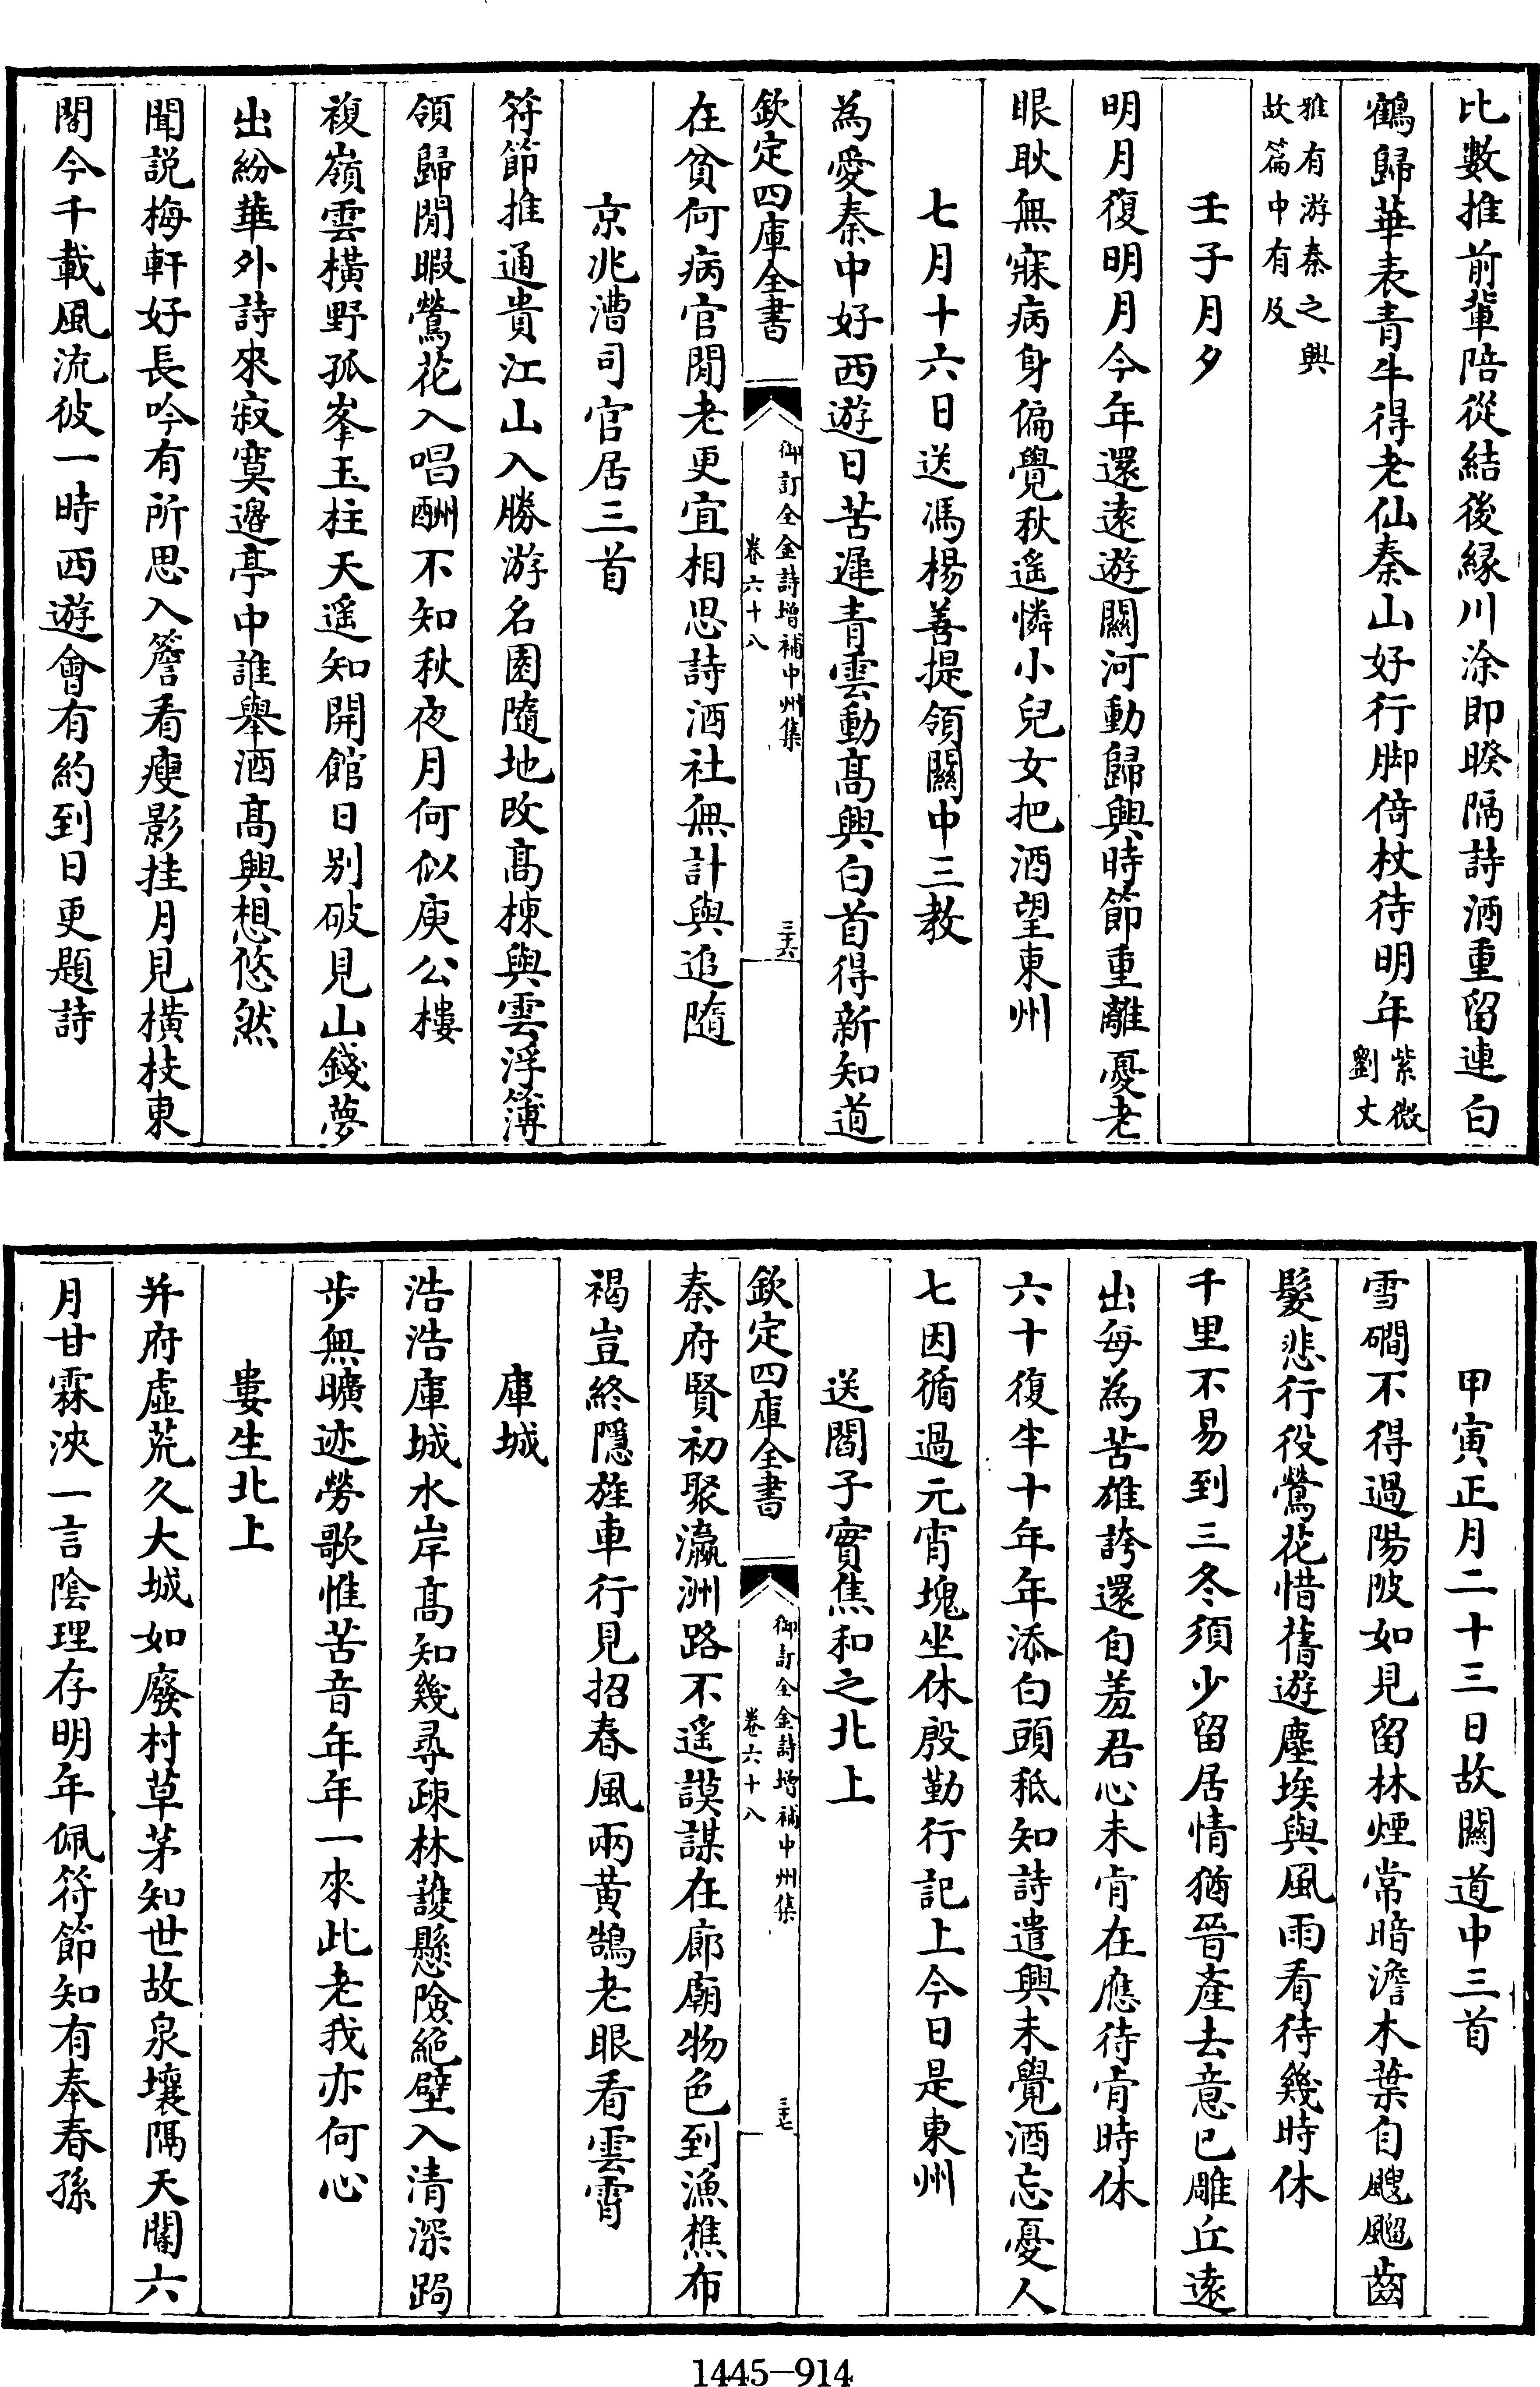 比數推前輩陪從結後縁川涂即暌隔詩酒重留連白
鶴歸華表青牛得老仙秦山好行脚倚杖待明年紫微劉丈
雅有游秦之興故篇中有及
壬子月夕
明月復明月今年還遠遊關河動歸興時節重離憂老
眼耿無寐病身偏覺秋遥憐小兒女把酒望東州
七月十六日送馮楊善提領關中三教
為愛秦中好西遊日苦遲青雲動髙興白首得新知道
欽定四庫全書
御訂全金詩增補中州集
卷六十八
三十六
在貧何病官閒老更宜相思詩酒社無計與追隨
京兆漕司官居三首
符節推通貴江山入勝游名園隨地改髙棟與雲浮簿
領歸閒暇鶯花入唱酬不知秋夜月何似庾公樓
複嶺雲橫野孤峯玉柱天遥知開館日别破見山錢夢
出紛華外詩來寂寞邉亭中誰舉酒髙興想悠然
聞説梅軒好長吟有所思入簷看瘦影挂月見橫枝東
閣今千載風流彼一時西遊會有約到日更題詩
甲寅正月二十三日故關道中三首
雪磵不得過陽陂如見留林煙常暗澹木葉自颼飀齒
髮悲行役鶯花惜舊遊塵埃與風雨看待幾時休
千里不易到三冬須少留居情猶晉產去意已雕丘遠
出每為苦雄誇還自羞君心未肯在應待肯時休
六十復半十年年添白頭秪知詩遣興未覺酒忘憂人
七因循過元宵塊坐休殷勤行記上今日是東州
送閻子實焦和之北上
欽定四庫全書
御訂全金詩增補中州集
卷六十八
三十七
秦府賢初聚瀛洲路不遥謨謀在廊廟物色到漁樵布
褐豈終隱旌車行見招春風兩黄鵠老眼看雲霄
庫城
浩浩庫城水岸髙知幾尋疎林護懸險絶壁入清深跼
步無曠迹勞歌惟苦音年年一來此老我亦何心
婁生北上
并府虚荒久大城如廢村草茅知世故泉壤隔天閽六
月甘霖浹一言隂理存明年佩符節知有奉春孫
1445-914